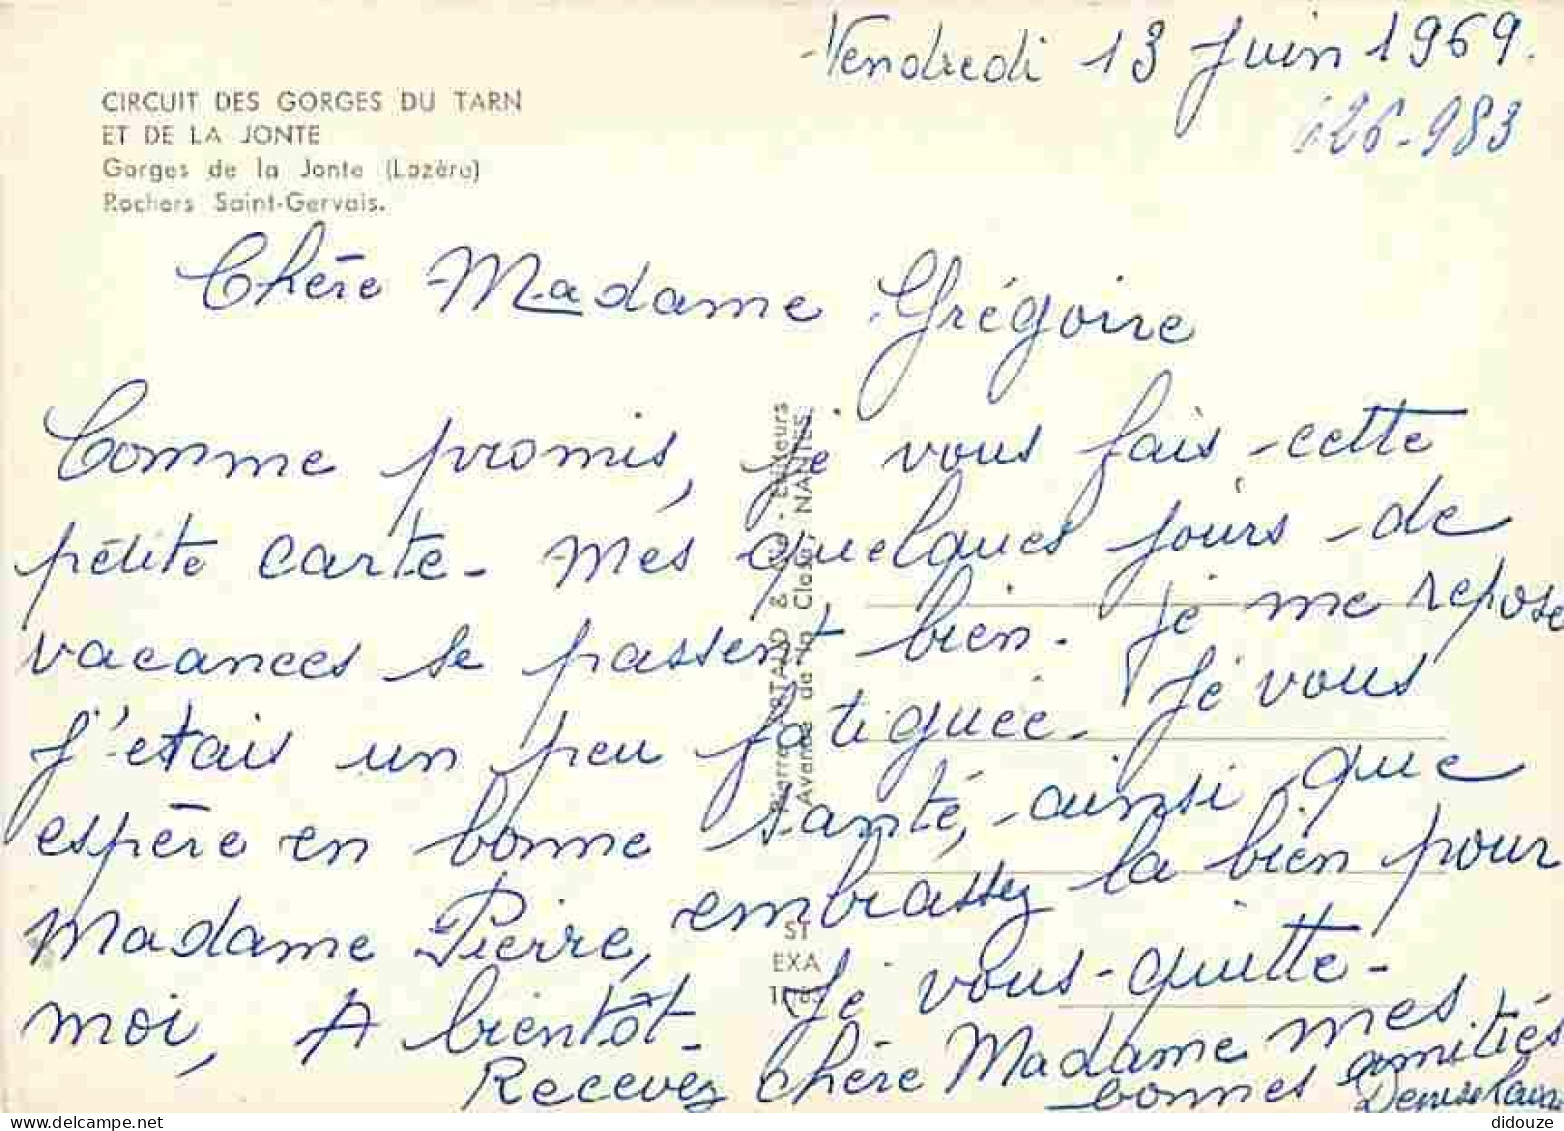 Vendredi 13 Juin 1969.
126-983
CIRCUIT DES GORGES DU TARN
ET DE LA JONTE
Gorges de la Jonte (Lozère)
Rochers Saint-Gervais.
Chère Madame Grégoire
Comme promis, je vous fais cette
petite carte. Mes quelques jours de
vacances se passent bien. Je me repose
J'etais un peu fatiguée. Je vous
espère en bonne santé, ainsi que
Madame Pierre, embrassez la bien pour
moi, A bientôt. Je vous quitte.
Recevez Chère Madame mes
bonnes amitiés
Denise
Pierre ARTAUD & Cie - Editeurs
Avenue de la Close, NANTES
ST
EXA
delcampe.net
didouze